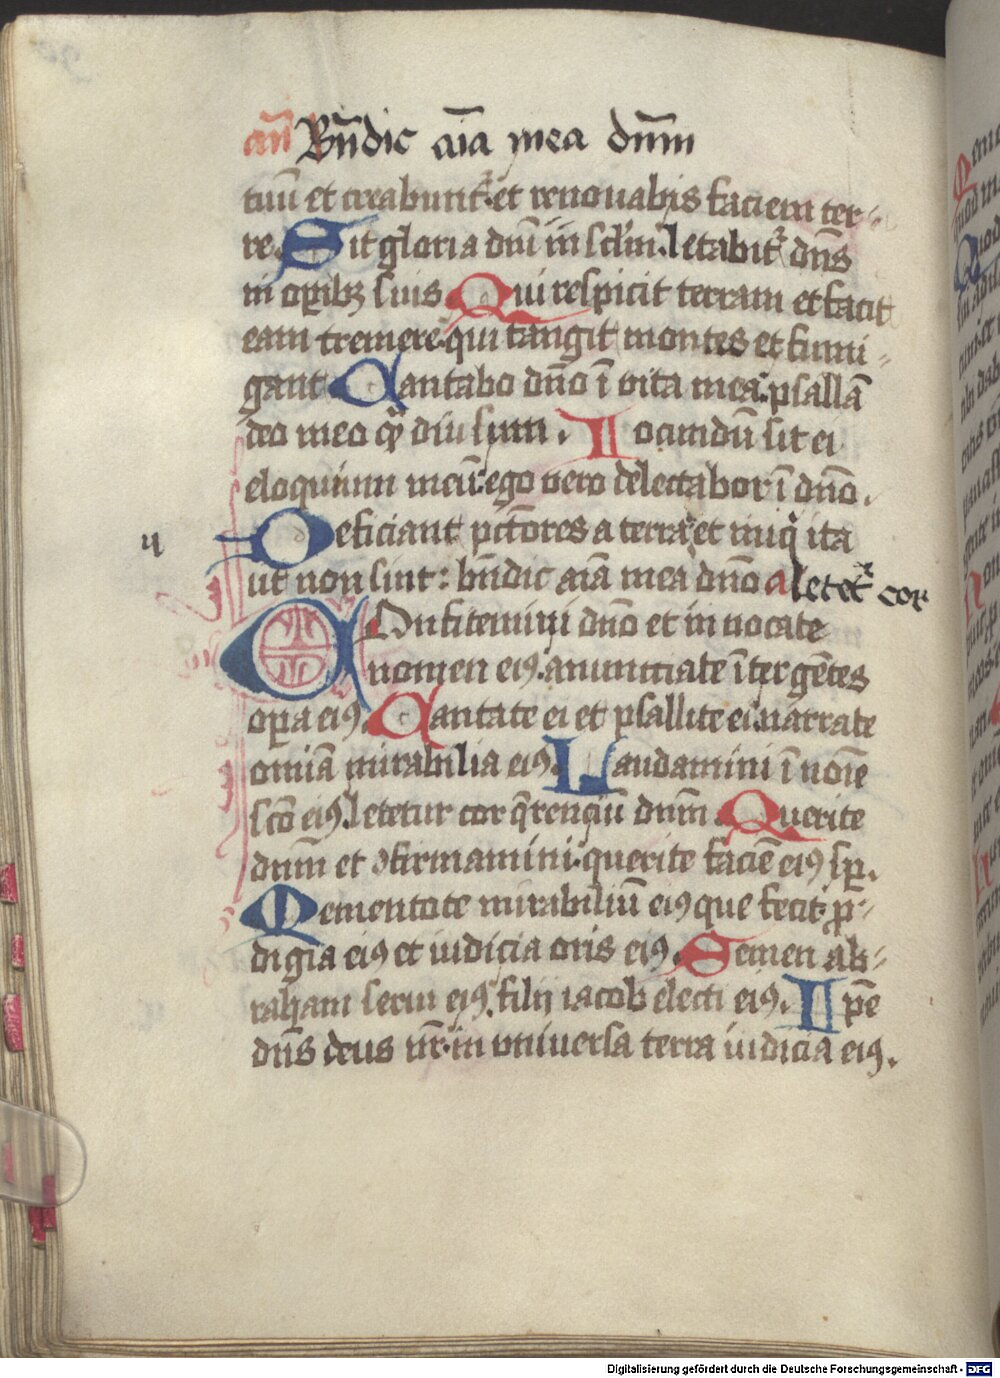 an̄ Bn̄dic aīa mea dn̄m
tuū et creabunt᷑ et renouabis faciem ter-
re. Sit gloria dn̄i in sclm̄ letabit᷑ dn̄s
in oꝑibꝫ suis Qui respicit terram et facit
eam tremere qui tangit montes et fumi-
gant Cantabo dn̄o ī vita mea: psallā
deo meo qͣdiu sum. Iocundū sit ei
eloquium meū: ego vero delectabor ī dn̄o.
Deficiant pctōres a terra: et iniqͥ ita
ut non sint: bn̄dic aīa mea dn̄o a letet᷑ cor
COnfitemini dn̄o et in uocate
nomen eiꝰ. anunciate īter gētes
oꝑa eiꝰ. Cantate ei et psallite ei: narrate
omīa mirabilia eiꝰ. Laudamini ī noīe
scō eiꝰ: letetur cor q̄renciū dn̄m. Querite
dn̄m et ꝯfirmamini: querite faciē eiꝰ sꝑ.
Mementote mirabiliū eiꝰ que fecit: ꝓ-
digia eiꝰ et iudicia oris eiꝰ. Semen ab-
raham serui eiꝰ: filii iacob electi eiꝰ. Ipē
dn̄s deus nr̄: in vniuersa terra iudicia eiꝰ.
Digitalisierung gefördert durch die Deutsche Forschungsgemeinschaft - DFG